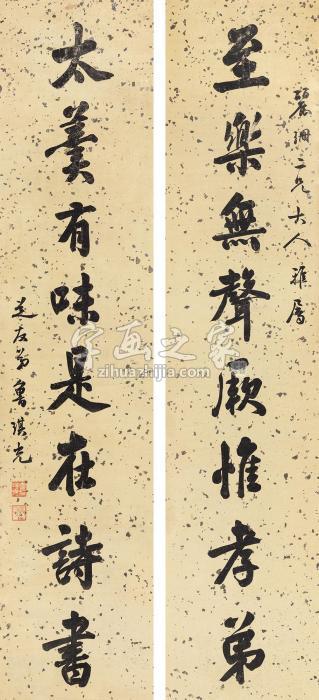 麗珊二兄大人雅屬
至樂無聲厥惟孝弟
太羹有味是在詩書
愚弟魯琪光
字画之家
zihuazhijia.com